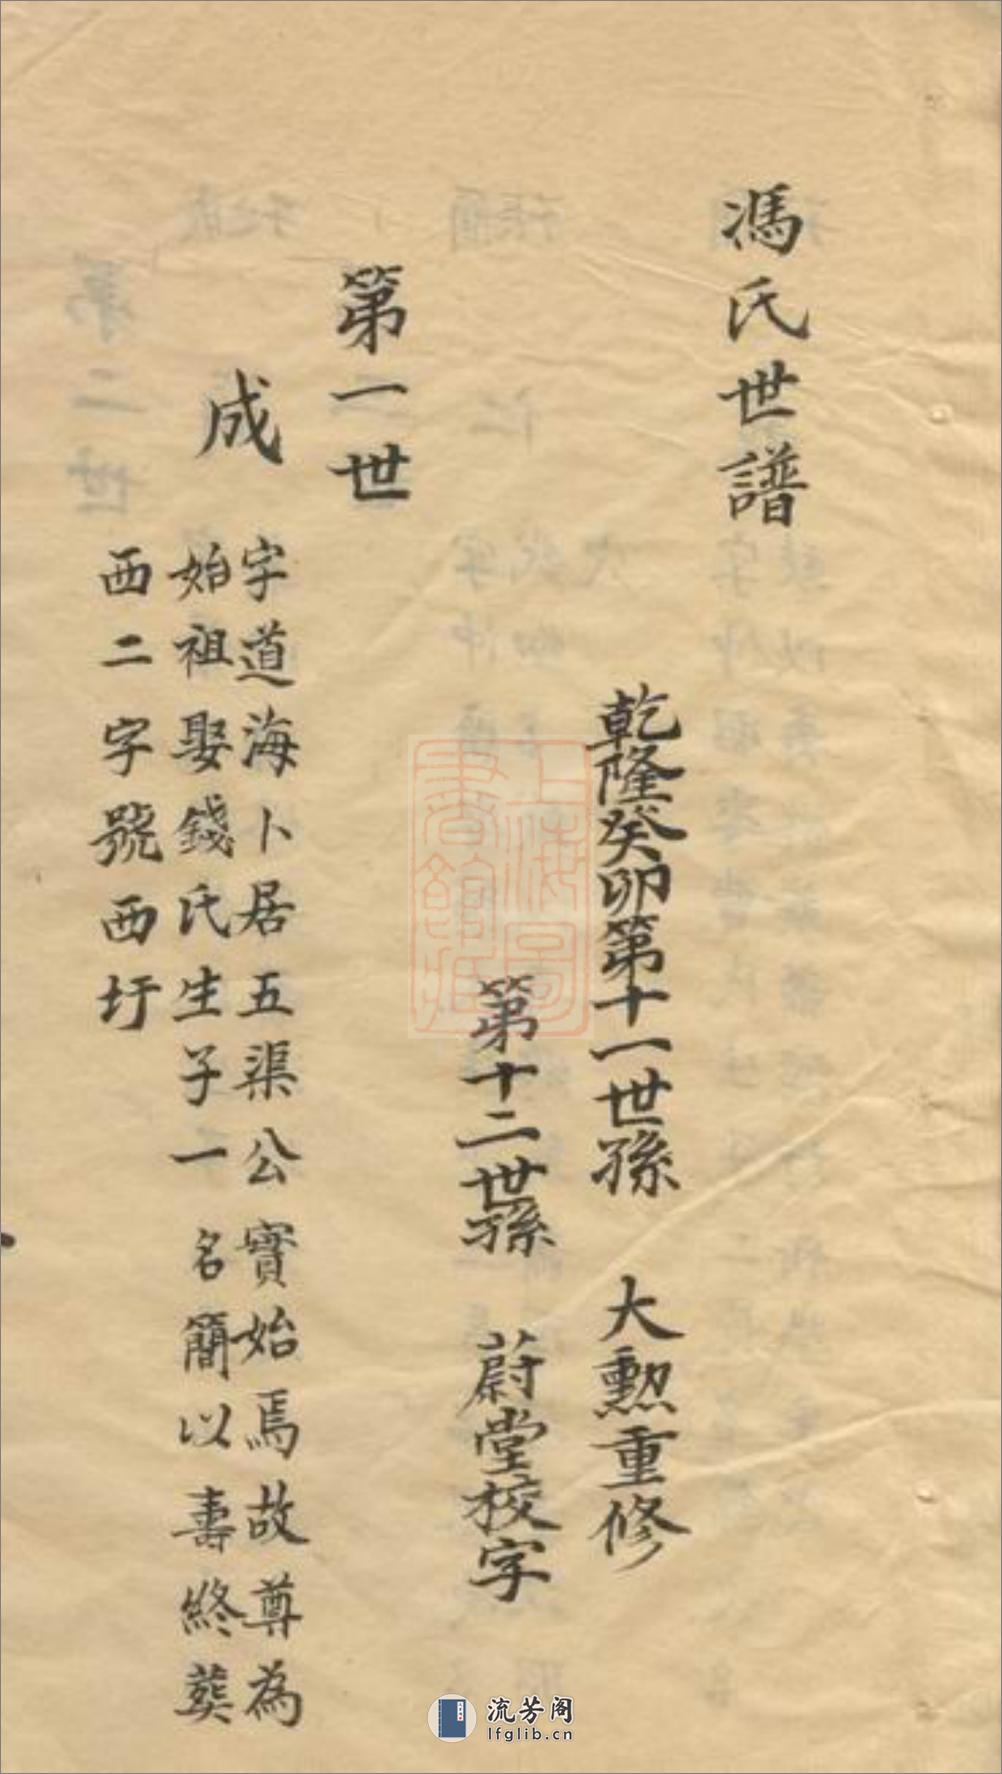 馮氏世譜
乾隆癸卯第十一世孫 大勲重修
第十二世孫 蔚堂校字
第一世
成
字道海卜居五渠公實始焉故尊為
始祖娶錢氏生子一名簡以壽終葬
西二字號西圩
上海圖書館藏
流芳阁
lfglib.cn